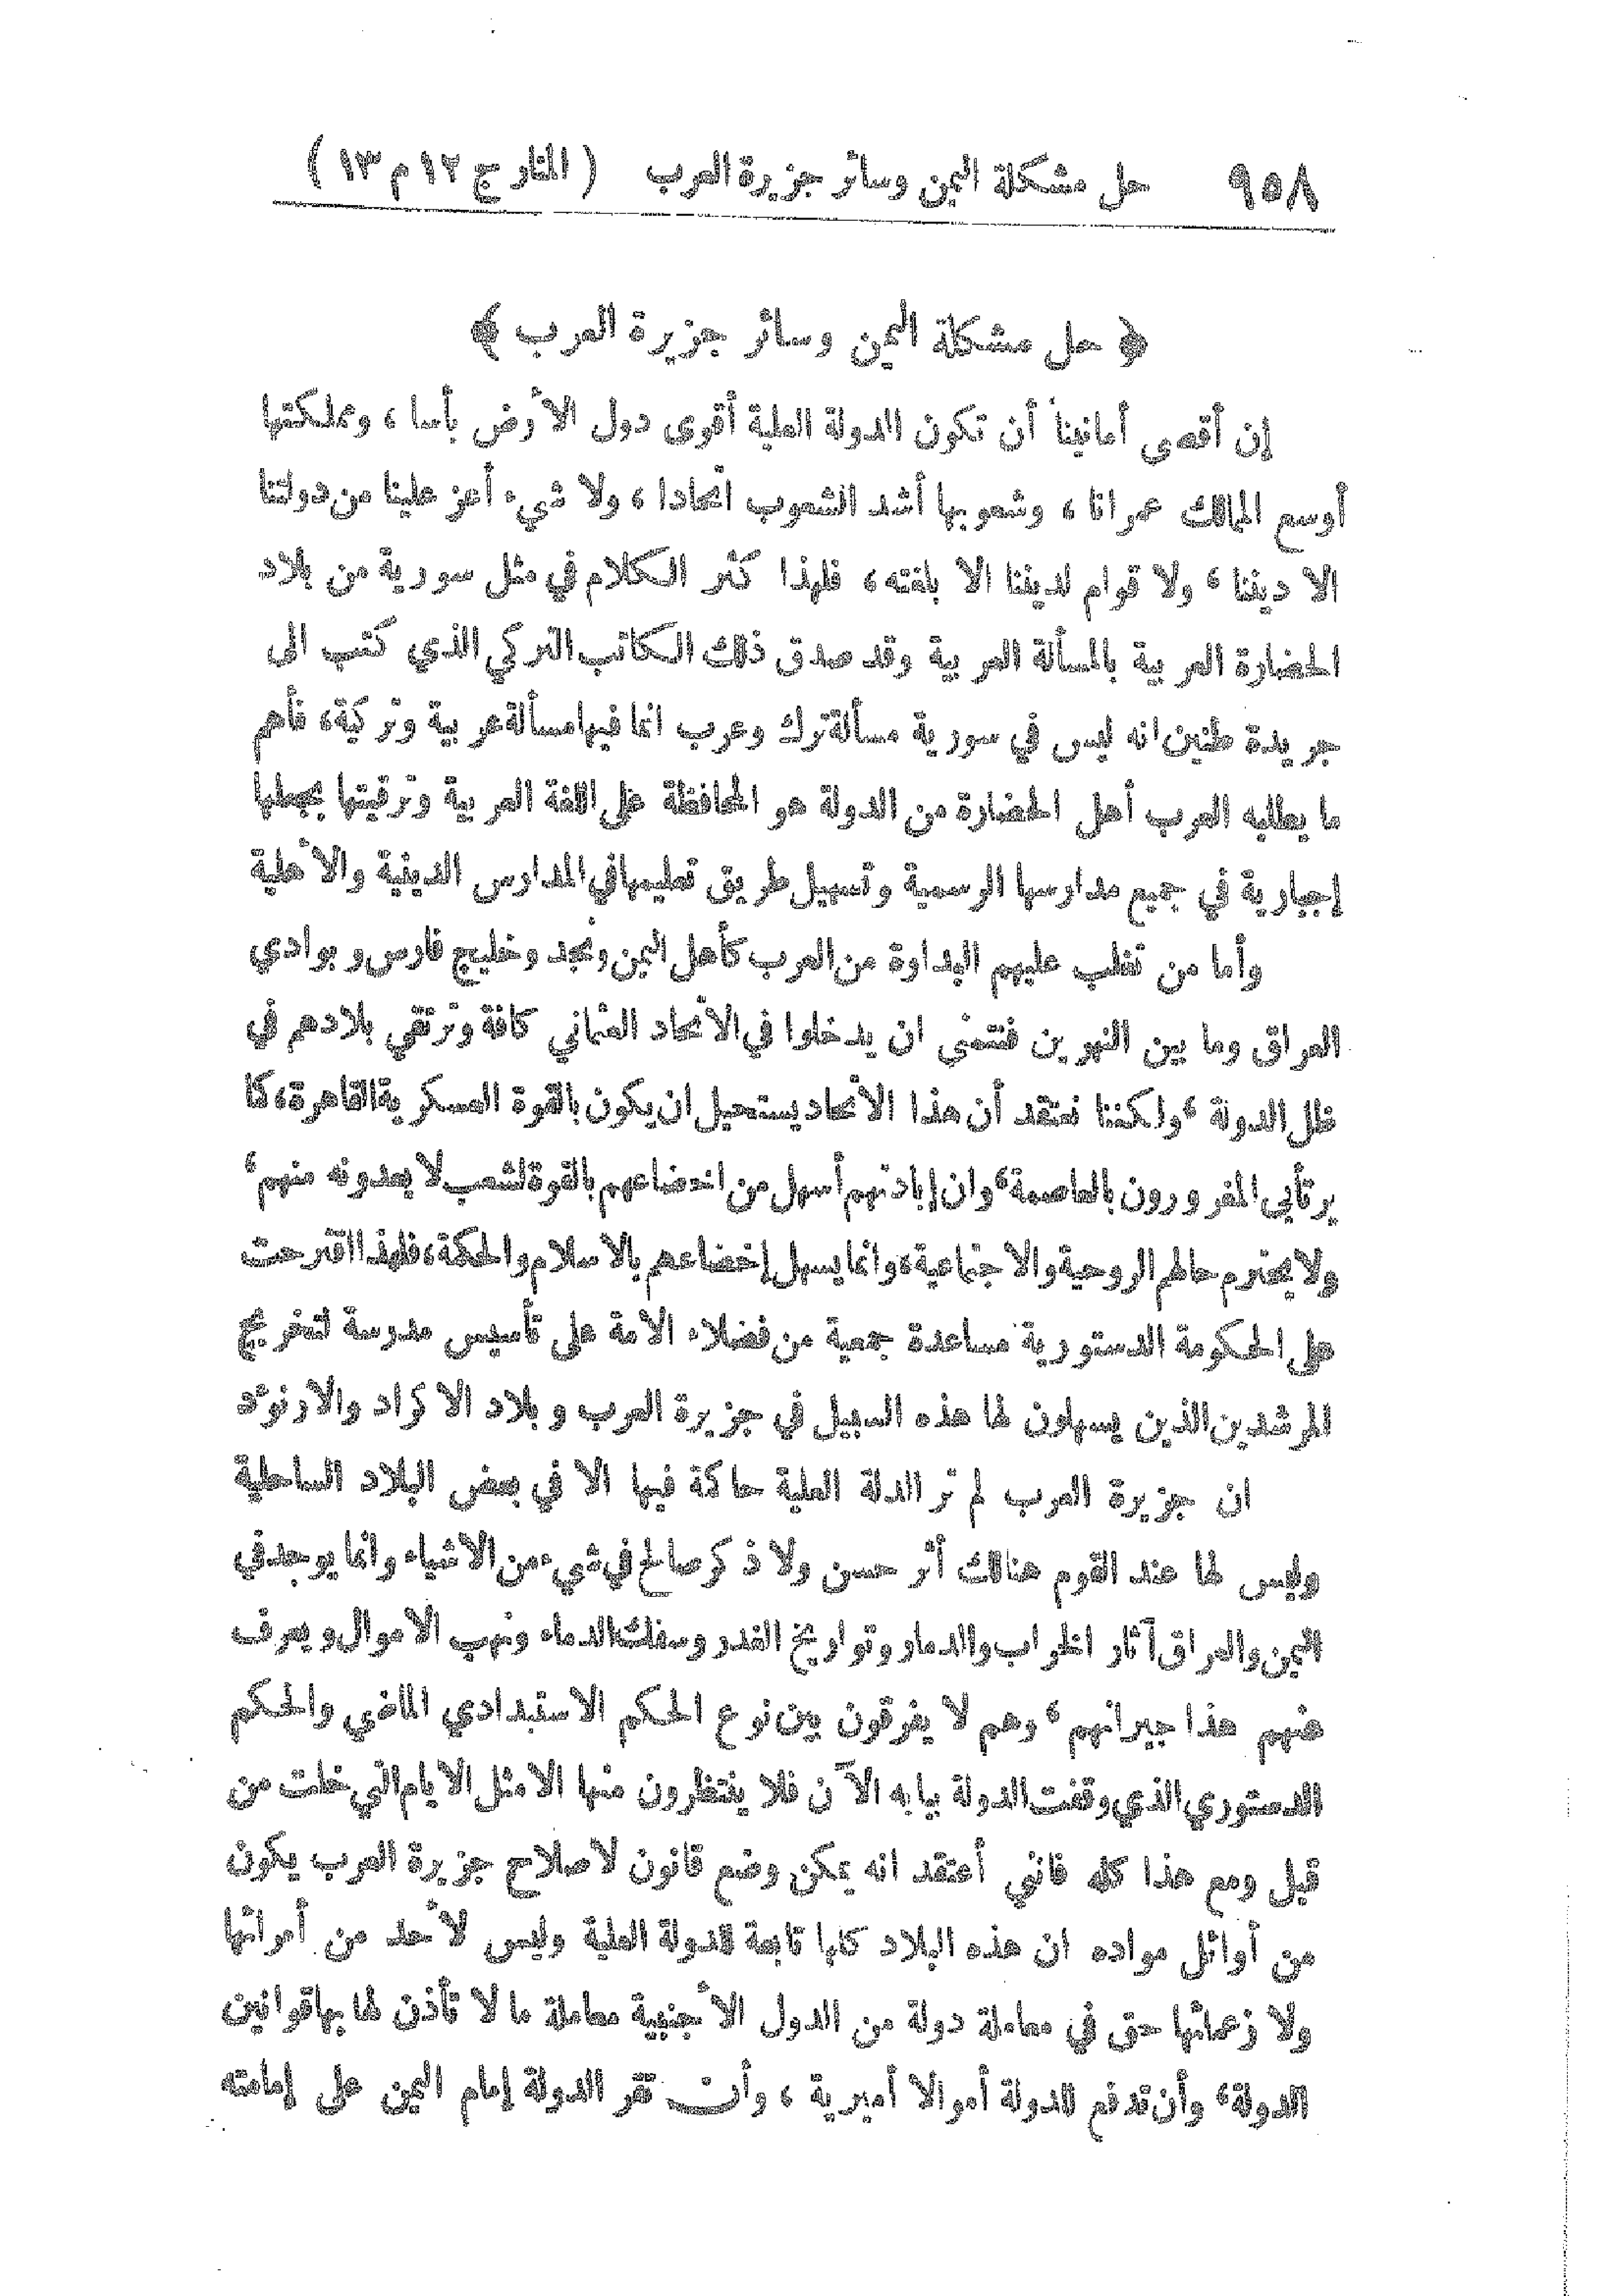 ٩٥٨ حل مشكلة اليمن وسائر جزيرة العرب ( المنار ج ١٢ م ١٣ )
﴿ حل مشكلة اليمن وسائر جزيرة العرب ﴾
إن أقصى أمانينا أن تكون الدولة العلية أقوى دول الأرض بأسا ، ومملكتها
أوسع الممالك عمرانا ، وشعوبها أشد الشعوب اتحادا ، ولا شيء أعز علينا من دولتنا
الا ديننا ، ولا قوام لديننا الا بلغته ، فلهذا كثر الكلام في مثل سورية من بلاد
الحضارة العربية بالمسألة العربية وقد صدق ذلك الكاتب التركي الذي كتب الى
جريدة طنين انه ليس في سورية مسألة ترك وعرب انما فيها مسألة عربية وتركية ، فأهم
ما يطلبه العرب أهل الحضارة من الدولة هو المحافظة على اللغة العربية وترقيتها بجعلها
إجبارية في جميع مدارسها الرسمية وتسهيل طريق تعليمها في المدارس الدينية والأهلية
وأما من تغلب عليهم البداوة من العرب كأهل اليمن ونجد وخليج فارس وبوادي
العراق وما بين النهرين فنتمنى ان يدخلوا في الأتحاد العثماني كافة وترتقي بلادهم في
ظل الدولة ، ولكننا نعتقد أن هذا الأتحاد يستحيل ان يكون بالقوة العسكرية القاهرة ، كما
يرتأيي المغرورون بالعاصمة ، وان إبادتهم أسهل من اخضاعهم بالقوة لشعب لا يعدونه منهم ،
ولا يحترم حالهم الروحية والاجتماعية ، وانما يسهل إخضاعهم بالاسلام والحكمة ، فلهذا اقترحت
على الحكومة الدستورية مساعدة جمعية من فضلاء الأمة على تأسيس مدرسة لتخريج
المرشدين الذين يسهلون لها هذه السبيل في جزيرة العرب وبلاد الا كراد والارنوءد
ان جزيرة العرب لم تر الدلة العلية حاكمة فيها الا في بعض البلاد الساحلية
وليس لها عند القوم هنالك أثر حسن ولا ذكر صالح في شيء من الاشياء وانما يوجد في
اليمن والعراق آثار الخراب والدمار وتواريخ الغدر وسفك الدماء ونهب الأموال ويعرف
عنهم هذا جيرانهم ، وهم لا يفرقون بين نوع الحكم الاستبدادي الماضي والحكم
الدستوري الذي وقفت الدولة ببابه الآن فلا ينتظرون منها الا مثل الايام التي خلت من
قبل ومع هذا كله فاني أعتقد انه يمكن وضع قانون لأصلاح جزيرة العرب يكون
من أوائل مواده ان هذه البلاد كلها تابعة للدولة العلية وليس لأحد من أمرائها
ولا زعمائها حق في معاملة دولة من الدول الأجنبية معاملة ما لا تأذن لها بها قوانين
الدولة ، وأن تدفع للدولة أموالا أميرية ، وأن تقر الدولة إمام اليمن على إمامته